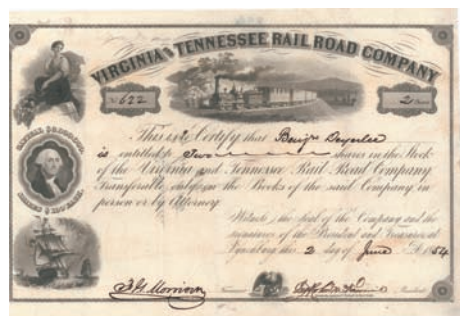 VIRGINIA AND TENNESSEE RAIL ROAD COMPANY
No 622
2 Shares
This is to Certify that Benj n Deyerlee
is entitled to Two shares in the Stock
of the Virginia and Tennessee Rail Road Company
Transferable only on the Books of the said Company in
person or by Attorney.
Witness, the seal of the Company and the
signatures of the President and Treasurer, at
Lynchburg this 2 day of June 1854